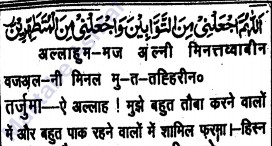 اَللّٰهُمَّ اجْعَلْنِيْ مِنَ التَّوَّابِيْنَ وَاجْعَلْنِيْ مِنَ الْمُتَطَهِّرِيْنَ
अल्लाहुम-मज अल्नी मिनत्तव्वाबीन
वजअल-नी मिनल मु-त-तह्हिरीन०
तर्जुमा-ऐ अल्लाह ! मुझे बहुत तौबा करने वालों
में और बहुत पाक रहने वालों में शामिल फ़रमा।-हिस्न